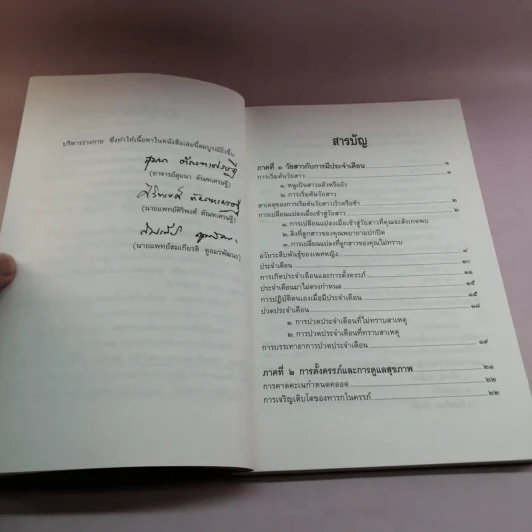 บริหารร่างกาย ซึ่งทำให้เนื้อหาในหนังสือเล่มนี้สมบูรณ์ยิ่งขึ้น
(อาจารย์สุมนา ตัณฑเศรษฐี)
(นายแพทย์ศิริพงศ์ ตัณฑเศรษฐี)
(นายแพทย์สมเกียรติ ทูอมรพัฒนะ)
สารบัญ
ภาคที่ ๑ วัยสาวกับการมีประจำเดือน ๑
การเริ่มต้นวัยสาว ๑
๑. หนูเป็นสาวแล้วหรือยัง
๒. การเริ่มต้นวัยสาว
สาเหตุของการเริ่มต้นวัยสาวเร็วหรือช้า ๒
การเปลี่ยนแปลงเมื่อเข้าสู่วัยสาว ๒
๑. การเปลี่ยนแปลงเมื่อเข้าสู่วัยสาวที่คุณจะสังเกตพบ
๒. สิ่งที่ลูกสาวของคุณพยายามปกปิด
๓. การเปลี่ยนแปลงที่ลูกสาวของคุณไม่ทราบ
อวัยวะสืบพันธุ์ของเพศหญิง ๔
ประจำเดือน ๑๐
การเกิดประจำเดือนและการตั้งครรภ์ ๑๓
ประจำเดือนมาไม่ตรงกำหนด ๑๕
การปฏิบัติตนเองเมื่อมีประจำเดือน ๑๕
ปวดประจำเดือน ๑๘
๑. การปวดประจำเดือนที่ไม่ทราบสาเหตุ
๒. การปวดประจำเดือนที่ทราบสาเหตุ
การบรรเทาอาการปวดประจำเดือน ๑๙
ภาคที่ ๒ การตั้งครรภ์และการดูแลสุขภาพ ๒๑
การคาดคะเนกำหนดคลอด ๒๒
การเจริญเติบโตของทารกในครรภ์ ๒๒